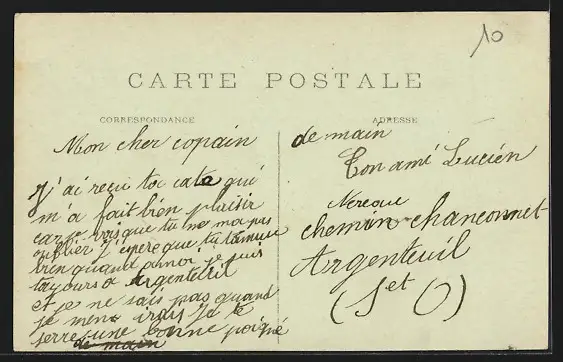 10
CARTE POSTALE
CORRESPONDANCE
Mon cher copain
J'ai reçu ta cate qui
m'a fait bien plaisir
car je vois que tu ne ma pas
oublier J'espere que tu tamuse
bien quand a moi je suis
toujours a Argenteuil
et je ne sais pas quand
je men irais Je te
serre une bonne poigné
de main
ADRESSE
de main
Ton ami Lucien
chemin chanconnet
Argenteuil
(S et O)